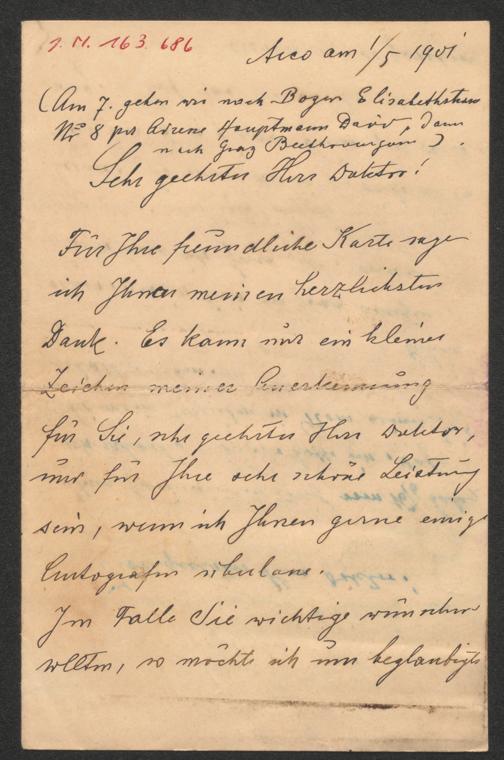 J. N. 163.686
Arco am 1/5 1901
(Am 7. gehen wir nach Bozen Elisabethstrasse
No 8 per Adresse Hauptmann David, dann
nach Graz Beethoveng ).
Sehr geehrter Herr Doktor!
Für Ihre freundliche Karte sage
ich Ihnen meinen herzlichsten
Dank. Es kann nur ein kleines
Zeichen meiner Anerkennung
für Sie, sehr geehrter Herr Doktor,
und für Ihre sehr schöne Leistung
sein, wenn ich Ihnen gerne einige
Autografen überlasse.
Im Falle Sie wichtige wünschen
wollten, so möchte ich um beglaubigte